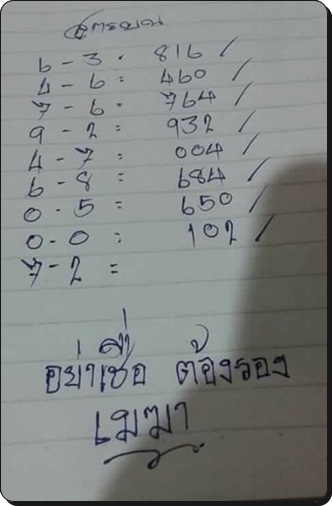 สูตรบน
6-3. 816 /
4-6: 460 /
7-6. 764 /
9-2: 932 /
4-7: 004 /
6-8= 684 /
0.5: 650 /
0.0: 102 /
7-2 =
อย่าเชื่อ ต้องรอง
เมฆา